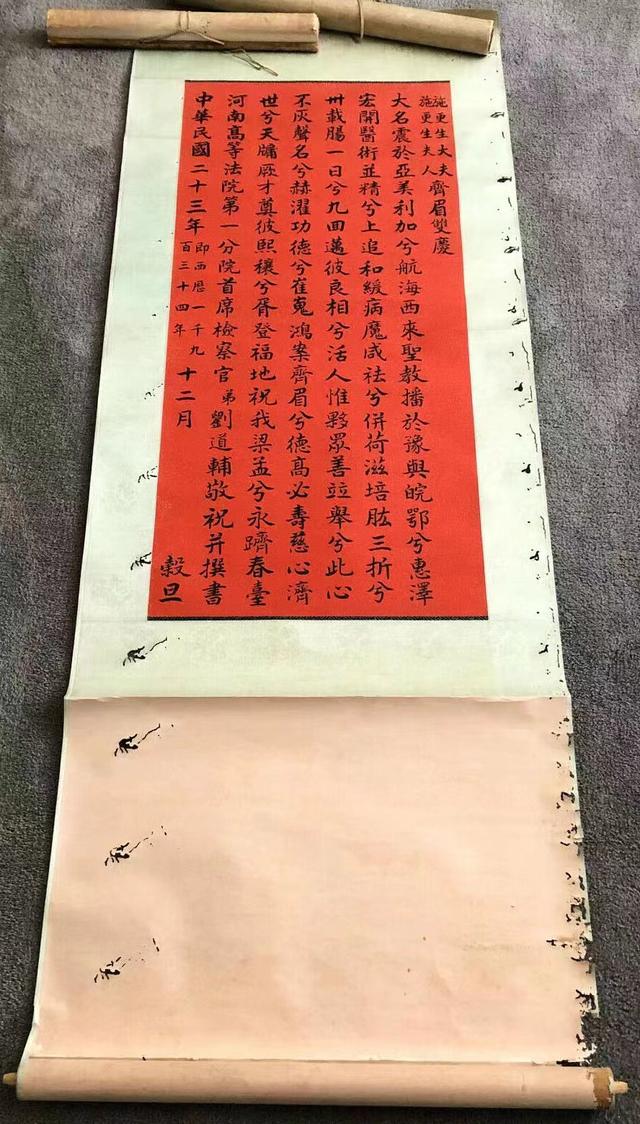 施更生大夫
施更生夫人
齊眉雙慶
大名震於亞美利加兮航海西來聖教播於豫與皖鄂兮惠澤
宏開醫術並精兮上追和緩病魔咸祛兮併荷滋培肱三折兮
卅載腸一日兮九回邁彼良相兮活人惟夥眾善竝舉兮此心
不灰聲名兮赫濯功德兮崔嵬鴻案齊眉兮德高必壽慈心濟
世兮天牖厥才奠彼熙穰兮胥登福地祝我梁孟兮永躋春臺
河南高等法院第一分院首席檢察官弟劉道輔敬祝并撰書
中華民國二十三年即西曆一千九百三十四年十二月 穀旦